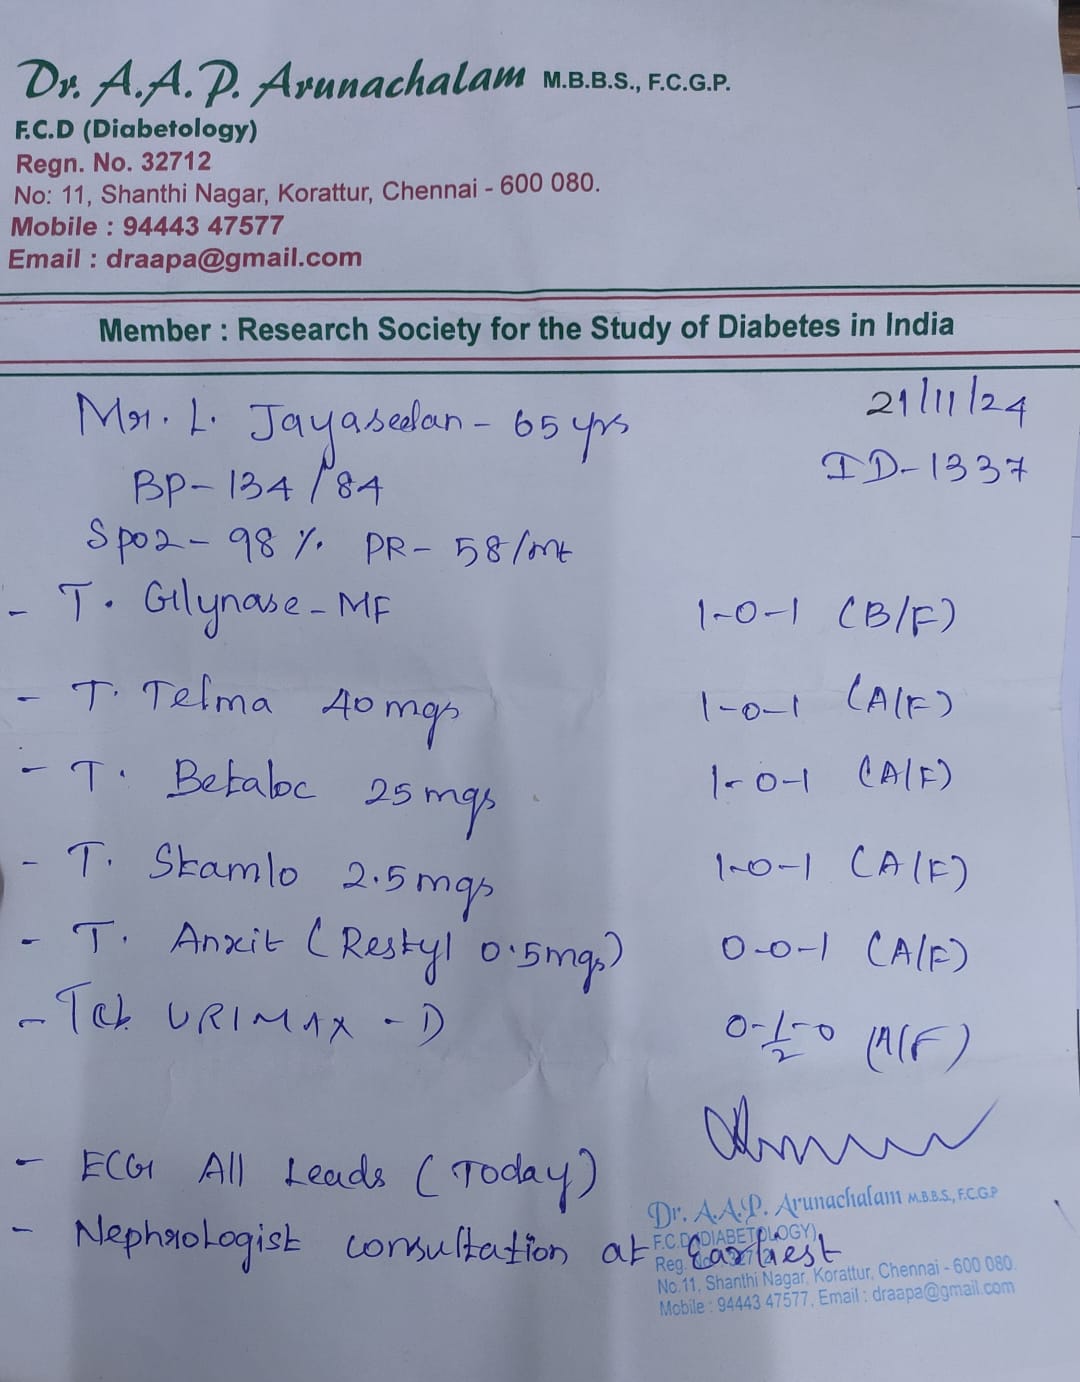 Dr. A.A.P. Arunachalam M.B.B.S., F.C.G.P.
F.C.D (Diabetology)
Regn. No. 32712
No: 11, Shanthi Nagar, Korattur, Chennai - 600 080.
Mobile : 94443 47577
Email : draapa@gmail.com
Member : Research Society for the Study of Diabetes in India
Mr. L. Jayaseelan - 65 yrs 21/11/24
BP - 134/84 ID-1337
Spo2 - 98 % PR - 58/mt
- T. Gilynase - MF 1-0-1 (B/F)
- T. Telma 40 mgs 1-0-1 (A/F)
- T. Betaloc 25 mgs 1-0-1 (A/F)
- T. Stamlo 2.5 mgs 1-0-1 (A/F)
- T. Anxit (Restyl 0.5mgs) 0-0-1 (A/F)
- Tab URIMAX - D 0-1/2-0 (A/F)
- ECG All Leads (Today)
- Nephrologist consultation at Earliest
Dr. A.A.P. Arunachalam M.B.B.S., F.C.G.P
F.C.D (DIABETOLOGY),
Reg. No.
No.11, Shanthi Nagar, Korattur, Chennai - 600 080.
Mobile : 94443 47577, Email : draapa@gmail.com